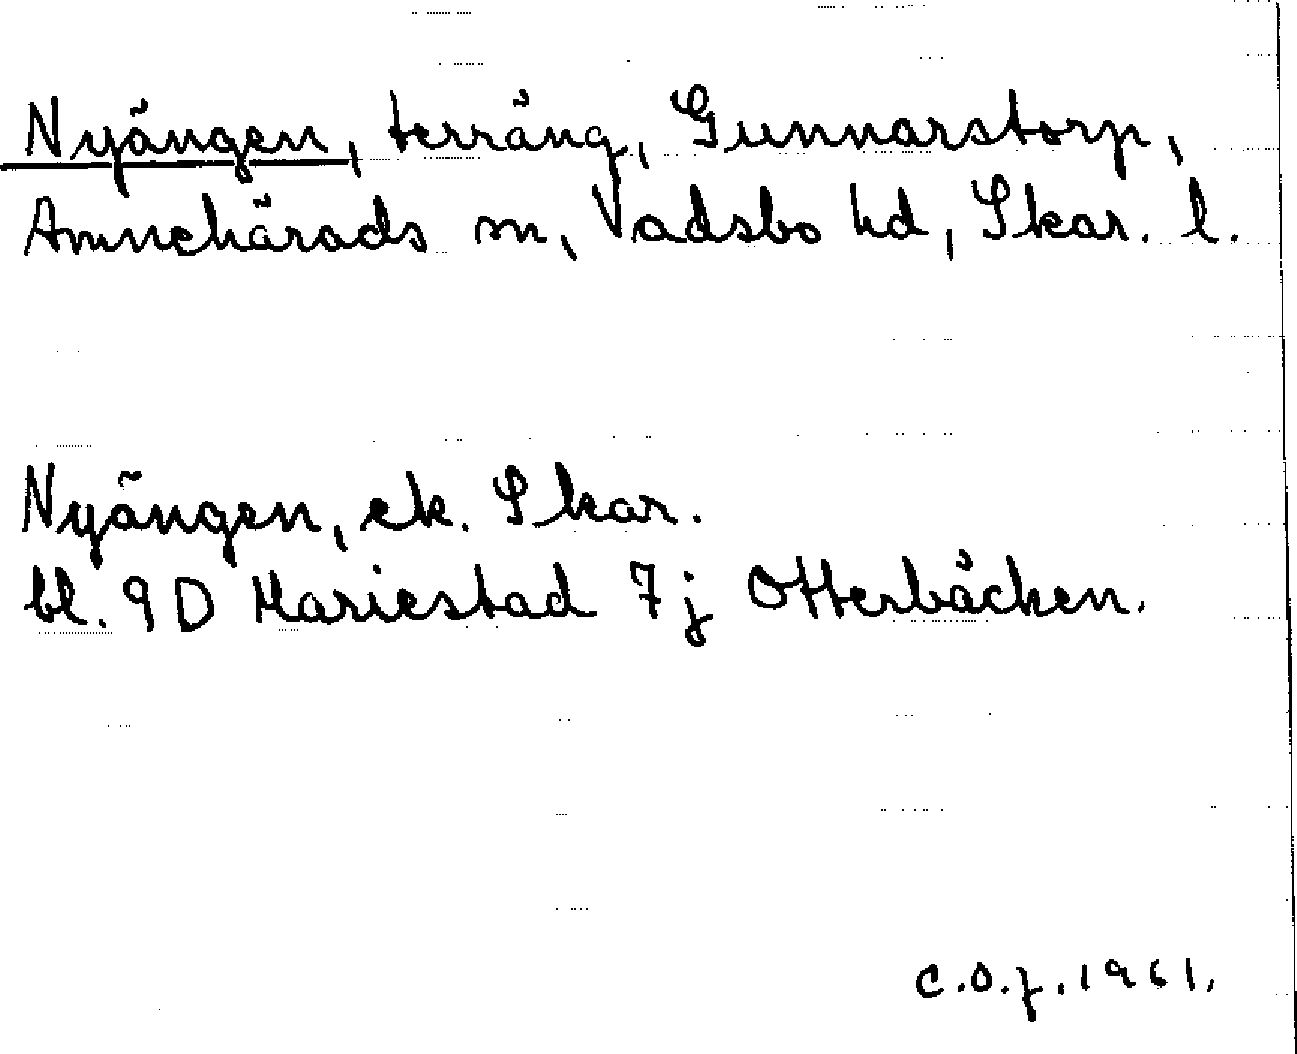 Nyängen, terräng, Gunnarstorp,
Amnehärads sn, Vadsbo hd, Skar. l.
Nyängen, ek. Skar.
bl. 9D Mariestad 7j Otterbäcken.
C.O.J. 1961.